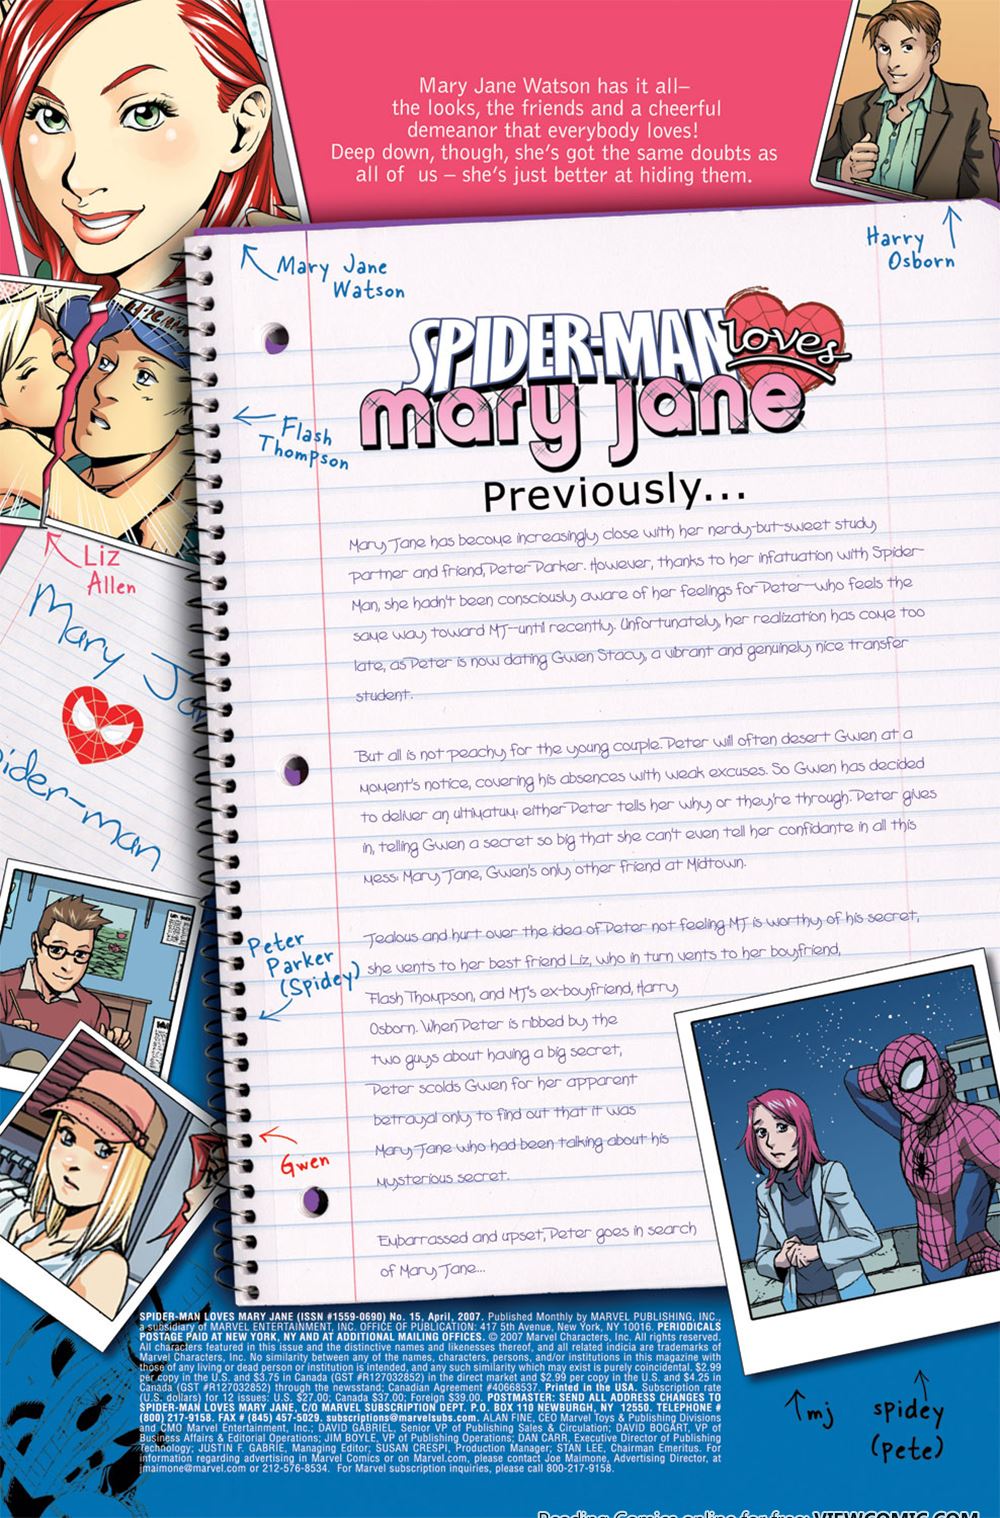 Mary Jane Watson has it all–
the looks, the friends and a cheerful
demeanor that everybody loves!
Deep down, though, she's got the same doubts as
all of us – she's just better at hiding them.
Harry
Osborn
Mary Jane
Watson
SPIDER-MAN loves
mary jane
Flash
Thompson
Previously...
Mary Jane has become increasingly close with her nerdy-but-sweet study
partner and friend, Peter Parker. However, thanks to her infatuation with Spider-
Man, she hadn't been consciously aware of her feelings for Peter--who feels the
same way toward MJ--until recently. Unfortunately, her realization has come too
late, as Peter is now dating Gwen Stacy, a vibrant and genuinely nice transfer
student.
Liz
Allen
Mary Ja
ider-man
But all is not peachy for the young couple. Peter will often desert Gwen at a
moment's notice, covering his absences with weak excuses. So Gwen has decided
to deliver an ultimatum: either Peter tells her why or they're through. Peter gives
in, telling Gwen a secret so big that she can't even tell her confidante in all this
mess: Mary Jane, Gwen's only other friend at Midtown.
Peter
Parker
(Spidey)
Jealous and hurt over the idea of Peter not feeling MJ is worthy of his secret,
she vents to her best friend Liz, who in turn vents to her boyfriend,
Flash Thompson, and MJ's ex-boyfriend, Harry
Osborn. When Peter is ribbed by the
two guys about having a big secret,
Peter scolds Gwen for her apparent
betrayal only to find out that it was
Mary Jane who had been talking about his
mysterious secret.
Gwen
Embarrassed and upset, Peter goes in search
of Mary Jane...
SPIDER-MAN LOVES MARY JANE (ISSN #1559-0690) No. 15, April, 2007. Published Monthly by MARVEL PUBLISHING, INC.,
a subsidiary of MARVEL ENTERTAINMENT, INC. OFFICE OF PUBLICATION: 417 5th Avenue, New York, NY 10016. PERIODICALS
POSTAGE PAID AT NEW YORK, NY AND AT ADDITIONAL MAILING OFFICES. © 2007 Marvel Characters, Inc. All rights reserved.
All characters featured in this issue and the distinctive names and likenesses thereof, and all related indicia are trademarks of
Marvel Characters, Inc. No similarity between any of the names, characters, persons, and/or institutions in this magazine with
those of any living or dead person or institution is intended, and any such similarity which may exist is purely coincidental. $2.99
per copy in the U.S. and $3.75 in Canada (GST #R127032852) in the direct market and $2.99 per copy in the U.S. and $4.25 in
Canada (GST #R127032852) through the newsstand; Canadian Agreement #40668537. Printed in the USA. Subscription rate
(U.S. dollars) for 12 issues: U.S. $27.00; Canada $37.00; Foreign $39.00. POSTMASTER: SEND ALL ADDRESS CHANGES TO
SPIDER-MAN LOVES MARY JANE, C/O MARVEL SUBSCRIPTION DEPT. P.O. BOX 110 NEWBURGH, NY 12550. TELEPHONE #
(800) 217-9158. FAX # (845) 457-5029. subscriptions@marvelsubs.com. ALAN FINE, CEO Marvel Toys & Publishing Divisions
and CMO Marvel Entertainment, Inc.; DAVID GABRIEL, Senior VP of Publishing Sales & Circulation; DAVID BOGART, VP of
Business Affairs & Editorial Operations; JIM BOYLE, VP of Publishing Operations; DAN CARR, Executive Director of Publishing
Technology; JUSTIN F. GABRIE, Managing Editor; SUSAN CRESPI, Production Manager; STAN LEE, Chairman Emeritus. For
information regarding advertising in Marvel Comics or on Marvel.com, please contact Joe Maimone, Advertising Director, at
jmaimone@marvel.com or 212-576-8534. For Marvel subscription inquiries, please call 800-217-9158.
mj
spidey
(pete)
Reading Comics online for free: VIEWCOMIC.COM